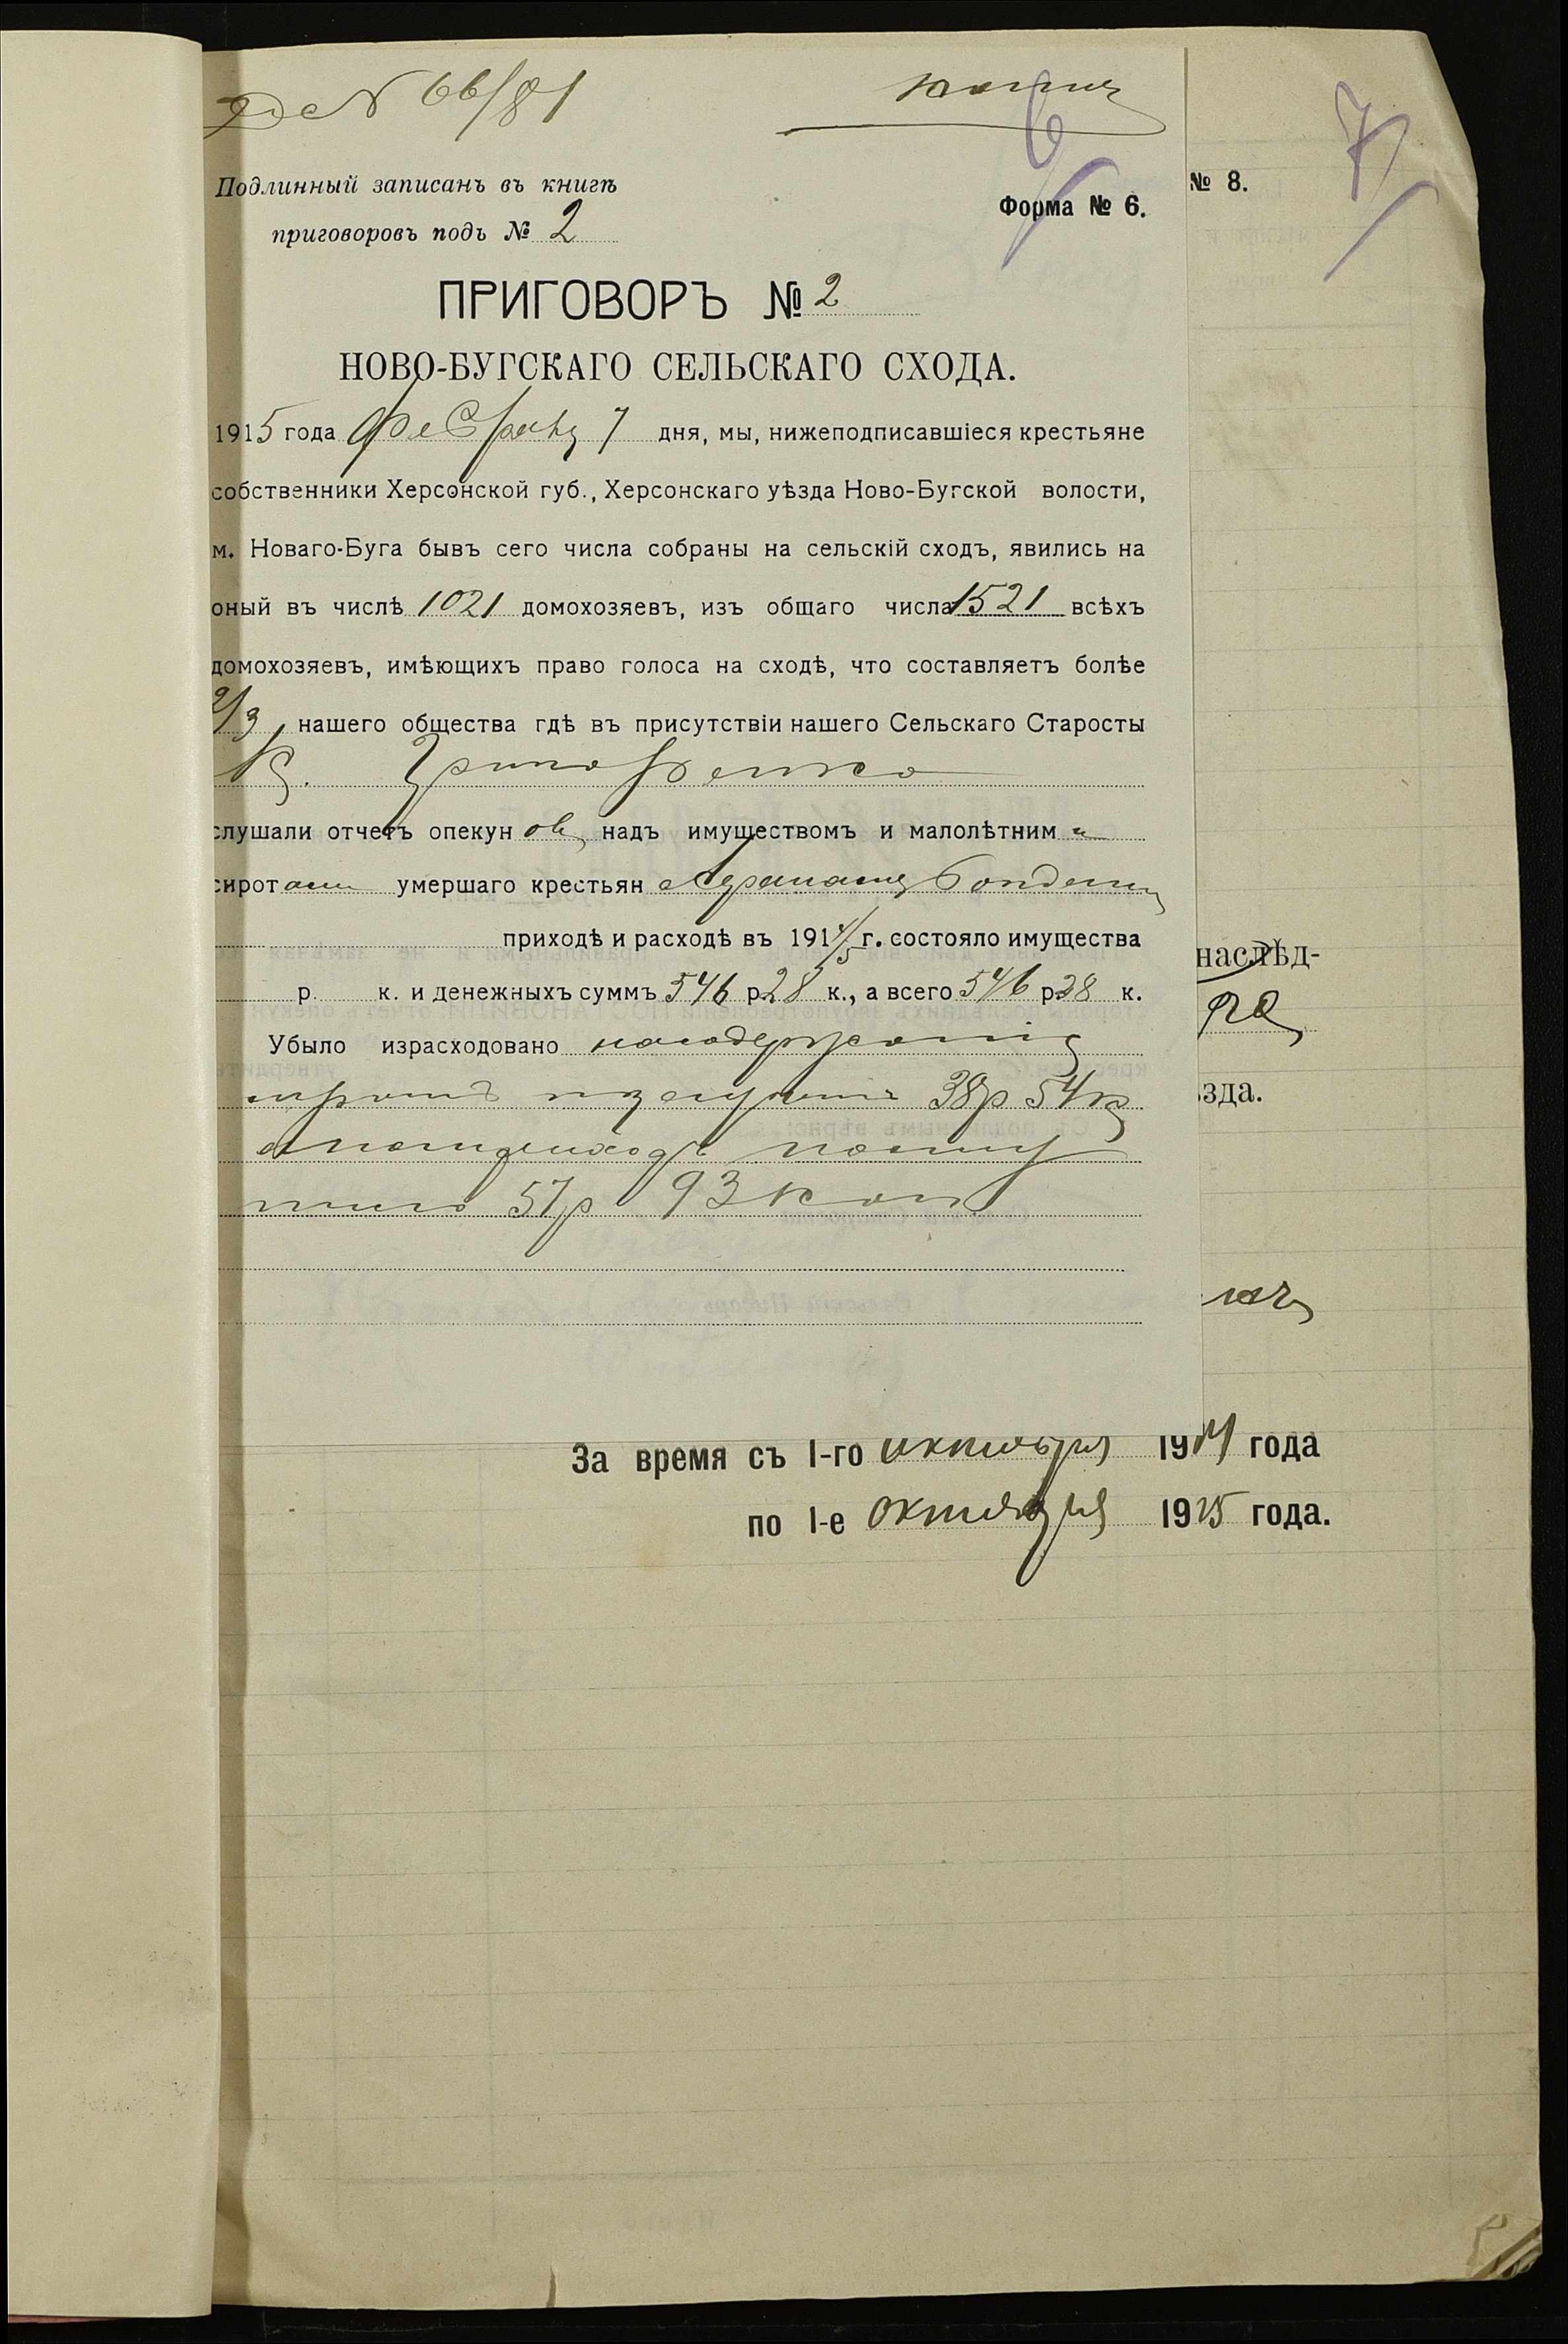 № 66/81
копия
6
7
Подлинный записанъ въ книгѣ
приговоровъ подъ № 2
Форма № 6.
№ 8.
ПРИГОВОРЪ № 2
НОВО-БУГСКАГО СЕЛЬСКАГО СХОДА.
1915 года Февраля 7 дня, мы, нижеподписавшіеся крестьяне
собственники Херсонской губ., Херсонскаго уѣзда Ново-Бугской волости,
м. Новаго-Буга бывъ сего числа собраны на сельскій сходъ, явились на
оный въ числѣ 1021 домохозяевъ, изъ общаго числа 1521 всѣхъ
домохозяевъ, имѣющихъ право голоса на сходѣ, что составляетъ болѣе
2/3 нашего общества гдѣ въ присутствіи нашего Сельскаго Старосты
слушали отчетъ опекуновъ надъ имуществомъ и малолѣтними
сиротами умершаго крестьян
приходѣ и расходѣ въ 1914/5 г. состояло имущества
р. к. и денежныхъ суммъ 546 р 28 к., а всего 546 р 28 к.
Убыло израсходовано на содержаніе
сиротъ 38р 54к
а поступ
ило 57р 93 коп
наслѣд-
зда.
За время съ 1-го октября 1914 года
по 1-е октября 1915 года.